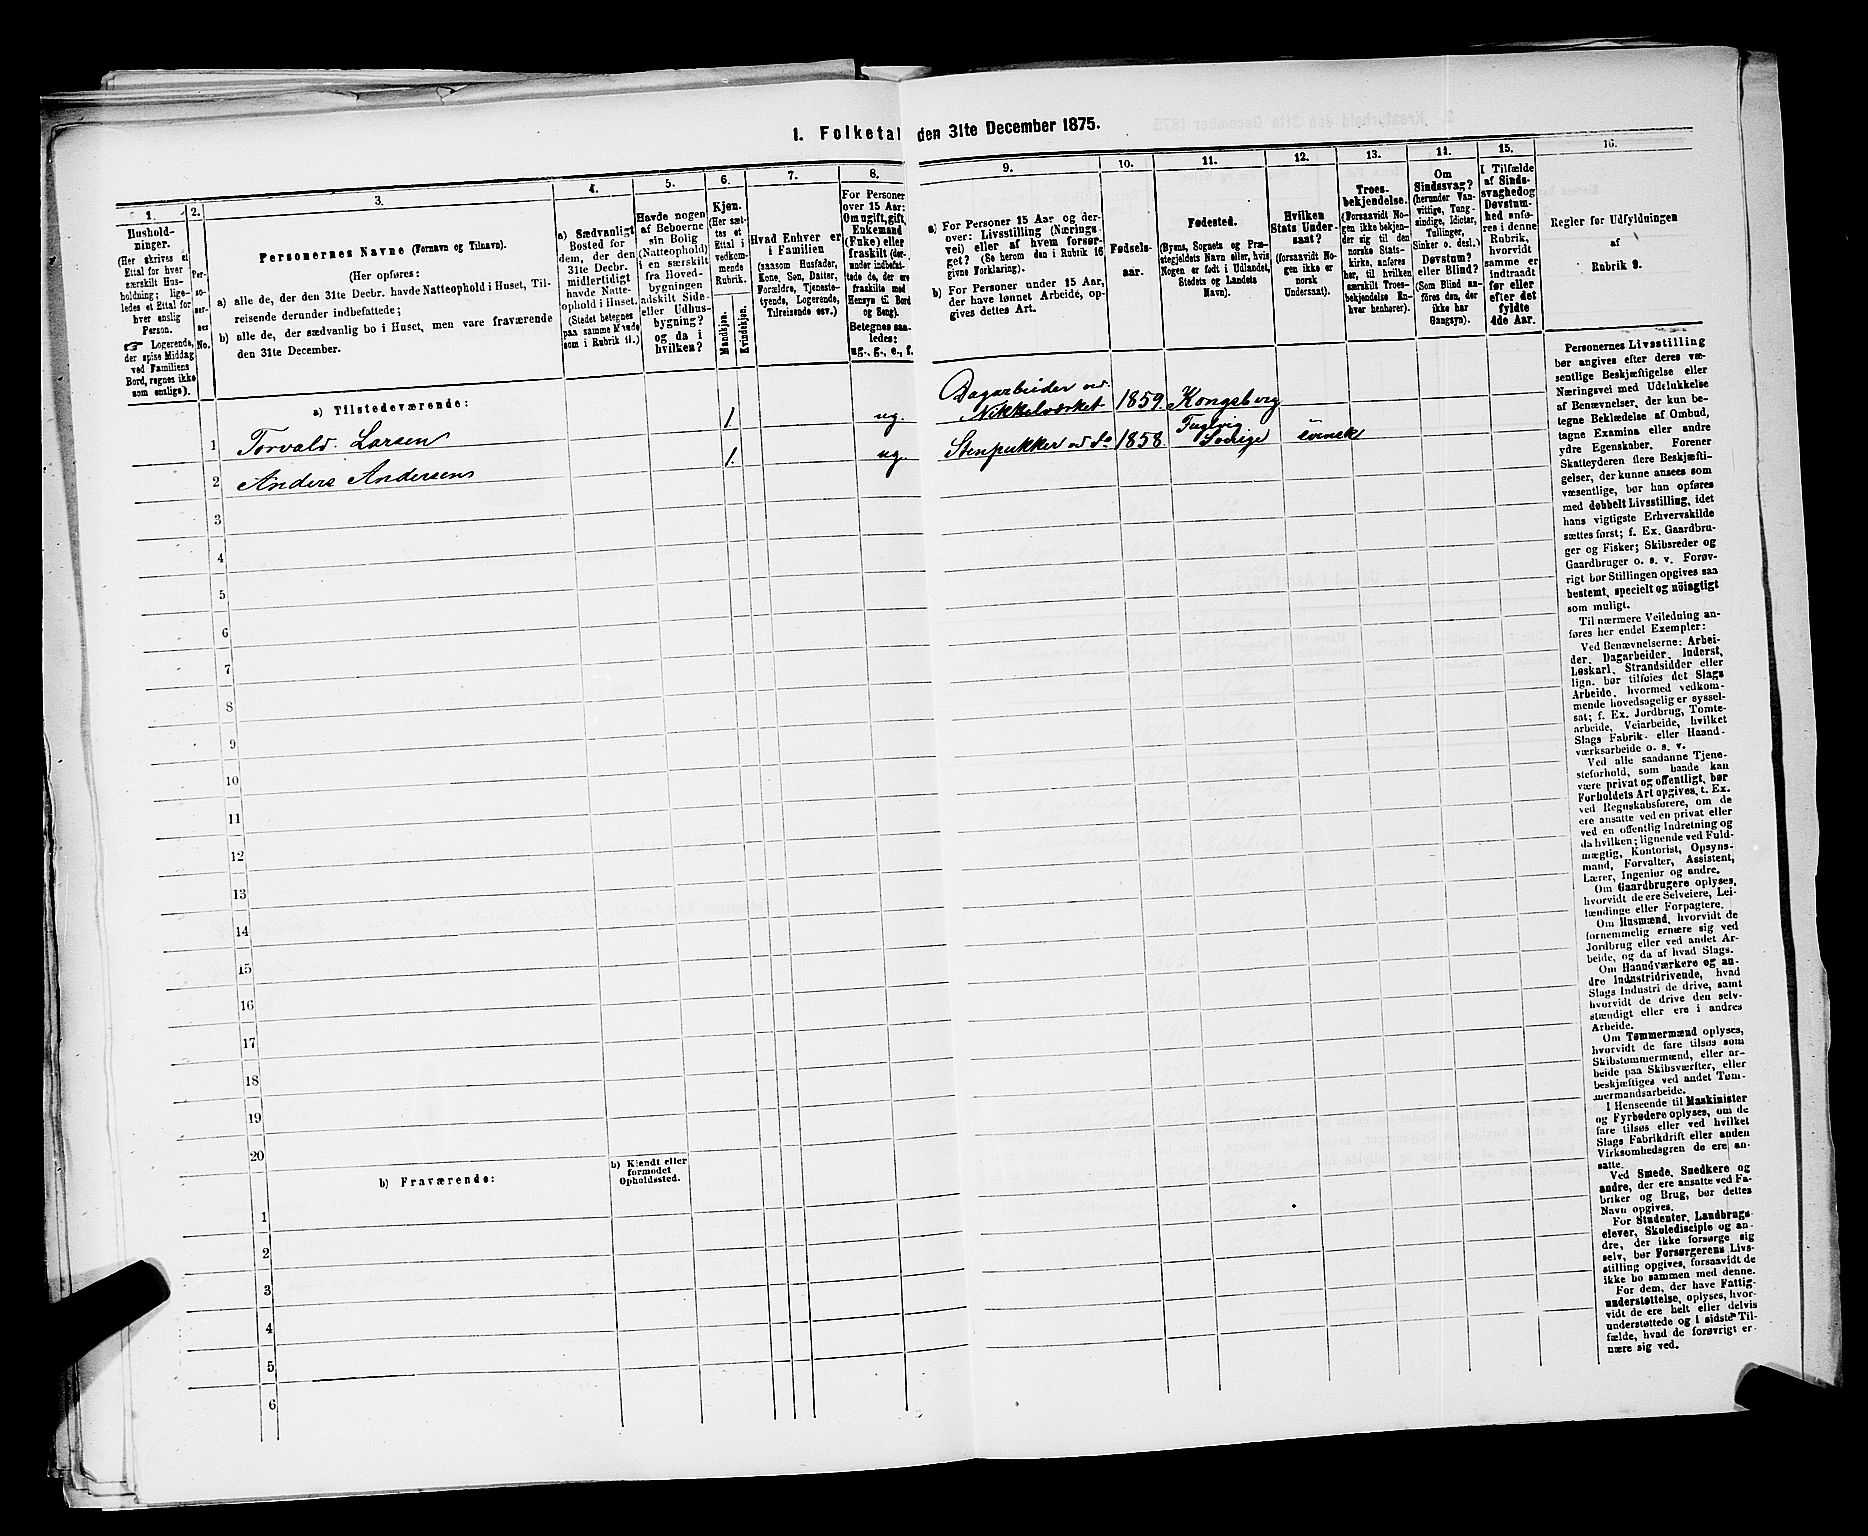 1. Folketal den 31te December 1875.
1.
2.
3.
4.
5.
6.
7.
8.
9.
10.
11.
12.
13.
14.
15.
16.
Husholdninger.
(Her skrives et Ettal for hver særskilt Husholdning; ligeledes et Ettal for hver enslig Person.
☞ Logerende, der spise Middag ved Familiens Bord, regnes ikke som enslige).
Personernes No.
Personernes Navne (Fornavn og Tilnavn).
(Her opføres:
a) alle de, der den 31te Decbr. havde Natteophold i Huset, Tilreisende derunder indbefattede;
b) alle de, der sædvanlig bo i Huset, men vare fraværende den 31te December.
a) Sædvanligt Bosted for dem, der den 31te Decbr. midlertidigt havde Natteophold i Huset. (Stedet betegnes paa samme Maade som i Rubrik 11.)
Havde nogen af Beboerne sin Bolig (Natteophold) i en særskilt fra Hovedbygningen adskilt Side- eller Udhusbygning? og da i hvilken?
Kjøn.
(Her sættes et Ettal i vedkommende Rubrik.
Mandkjøn.
Kvindekjøn.
Hvad Enhver er i Familien
(saasom Husfader, Kone, Søn, Datter, Forældre, Tjenestetyende, Logerende, Tilreisende osv.)
For Personer over 15 Aar: Om ugift, gift, Enkemand (Enke) eller fraskilt (derunder indbefattede de, der ere fraskilte med Hensyn til Bord og Seng).
Betegnes saaledes: ug., g., e., f.
a) For Personer 15 Aar og derover: Livsstilling (Næringsvei) eller af hvem forsørget? (Se herom den i Rubrik 16 givne Forklaring).
b) For Personer under 15 Aar, der have lønnet Arbeide, opgives dettes Art.
Fødselsaar.
Fødested.
(Byens, Sognets og Præstegjeldets Navn eller, hvis Nogen er født i Udlandet, Stedets og Landets Navn).
Hvilken Stats Undersaat?
(forsaavidt Nogen ikke er norsk Undersaat).
Troesbekjendelse.
(Forsaavidt Nogen ikke bekjender sig til den norske Statskirke, anføres her, til hvilken særskilt Troesbekjendelse Enhver henhører).
Om Sindssvag? (herunder Vanvittige, Tungsindige, Idioter, Tullinger, Sinker o. desl.) Døvstum? eller Blind? (Som Blind anføres den, der ikke har Gangsyn).
I Tilfælde af Sindssvaghed og Døvstumhed anføres i denne Rubrik, hvorvidt samme er indtraadt før eller efter det fyldte 4de Aar.
Regler for Udfyldningen
af
Rubrik 9.
a) Tilstedeværende:
1 Torvald Larsen 1. ug. Dagarbeider ved Nikkelværket 1859. Kongsberg
2 Anders Andersen 1. ug. Stenpukker Do 1858. Sverige svensk
3
4
5
6
7
8
9
10
11
12
13
14
15
16
17
18
19
20
b) Fraværende:
b) Kjendt eller formodet Opholdssted.
1
2
3
4
5
6
Personernes Livsstilling
bør angives efter deres væ-
sentlige Beskjæftigelse eller
Næringsvei med Udelukkelse
af Benævnelser, der kun be-
tegne Beklædelse af Ombud,
tagne Examina eller andre
ydre Egenskaber. Forener
Skatteyderen flere Beskjæfti-
gelser, der kunne ansees som
væsentlige, bør han opføres
med dobbelt Livsstilling, idet
hans vigtigste Erhvervskilde
sættes først; f. Ex. Gaardbru-
ger og Fisker; Skibsreder og
Gaardbruger o. s. v. Forøv-
rigt bør Stillingen opgives saa
bestemt, specielt og nöiagtigt
som muligt.
Til nærmere Veiledning an-
føres her endel Exempler:
Ved Benævnelserne: Arbei-
der, Dagarbeider, Inderst,
Løskarl, Strandsidder eller
lign. bør tilføies det Slags
Arbeide, hvormed vedkom-
mende hovedsagelig er syssel-
sat; f. Ex. Jordbrug, Tomte-
arbeide, Veiarbeide, hvilket
Slags Fabrik- eller Haand-
værksarbeide o. s. v.
Ved alle saadanne Tjene-
steforhold, som baade kan
være privat og offentligt, bør
Forholdets Art opgives, t. Ex.
ved Regnskabsførere, om de
ere ansatte ved en privat eller
ved en offentlig Indretning og
da hvilken; lignende ved Fuld-
mægtig, Kontorist, Opsyns-
mand, Forvalter, Assistent,
Lærer, Ingeniør og andre.
Om Gaardbrugere oplyses,
hvorvidt de ere Selveiere, Lei-
lændinge eller Forpagtere.
Om Husmænd, hvorvidt de
fornemmelig ernære sig ved
Jordbrug eller ved andet Ar-
beide, og da af hvad Slags.
Om Haandværkere og an-
dre Industridrivende, hvad
Slags Industri de drive, samt
hvorvidt de drive den selv-
stændigt eller ere i andres
Arbeide.
Om Tømmermænd oplyses,
hvorvidt de fare tilsøs som
Skibstømmermænd, eller ar-
beide paa Skibsværfter, eller
beskjæftiges ved andet Tøm-
mermandsarbeide.
I Henseende til Maskinister
og Fyrbødere oplyses, om de
fare tilsøs eller ved hvilket
Slags Fabrikdrift eller anden
Virksomhedsgren de ere an-
satte.
Ved Smede, Snedkere og
andre, der ere ansatte ved Fa-
briker og Brug, bør dettes
Navn opgives.
For Studenter, Landbrugs-
elever, Skoledisciple og an-
dre, der ikke forsørge sig
selv, bør Forsørgerens Livs-
stilling opgives, forsaavidt de
ikke bo sammen med denne.
For dem, der have Fattig-
understøttelse, oplyses, hvor-
vidt de ere helt eller delvis
understøttede og i sidste Til-
fælde, hvad de forøvrigt er-
nære sig ved.